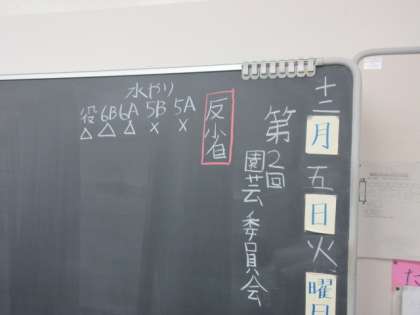 十二月五日火曜日
第2回園芸委員会
反省
水やり
役 6B 6A 5B 5A
△ △ △ × ×